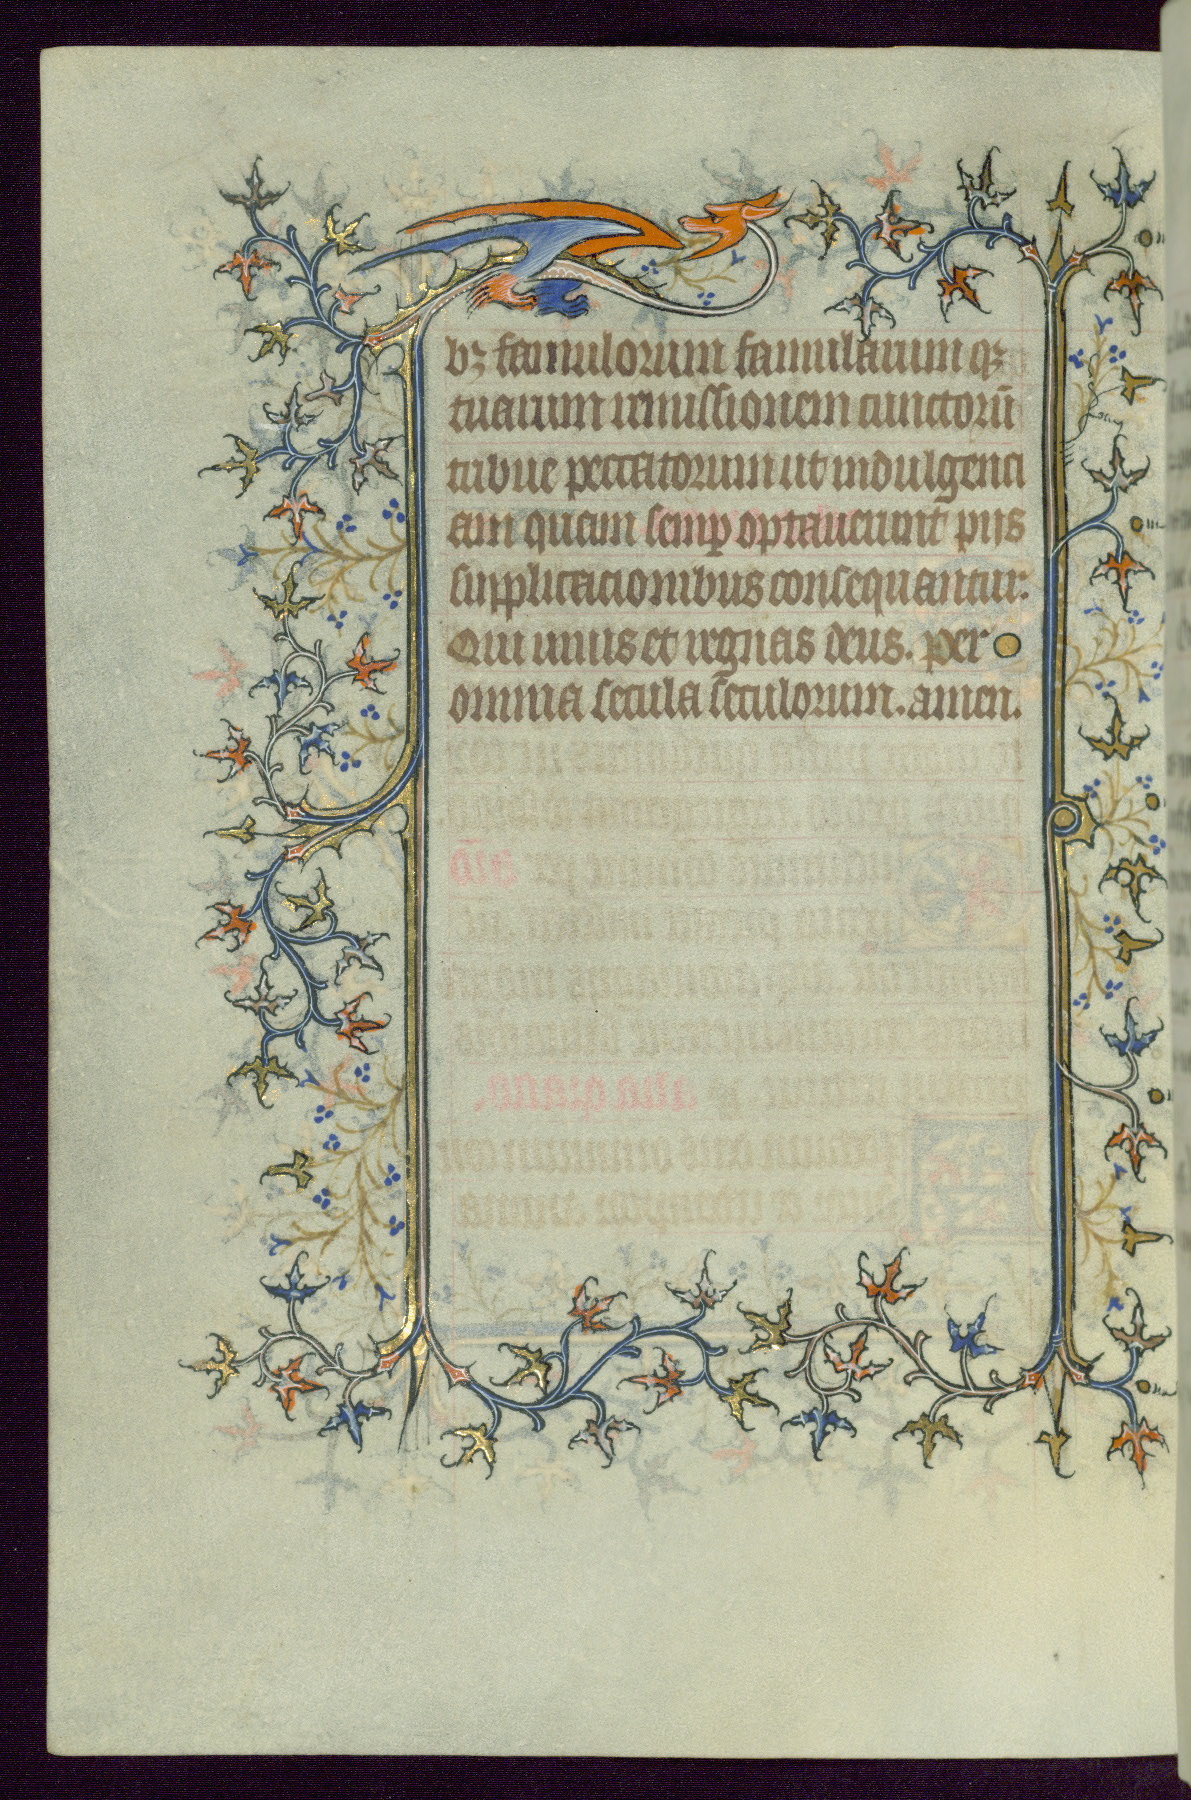 bꝫ famulorum famularum qꝫ
tuarum remissionem cunctorū
tribue peccatorum ut indulgenci
am quam semꝑ optauerunt piis
supplicacionibus consequantur.
Qui uiuis et regnas deus. per
omnia secula seculorum. amen.